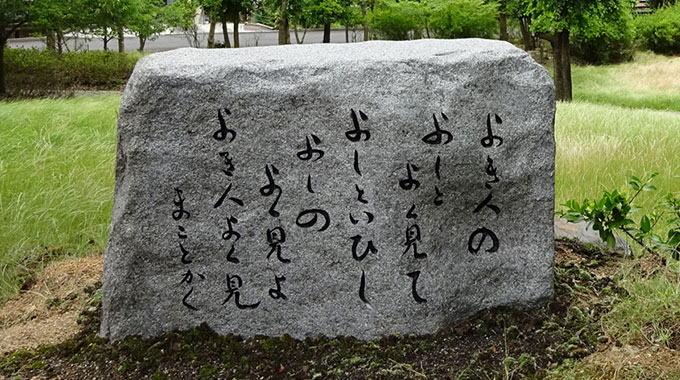 よき人の
よしと
よく見て
よしといひし
よしの
よく見よ
よき人よく見
まことかく